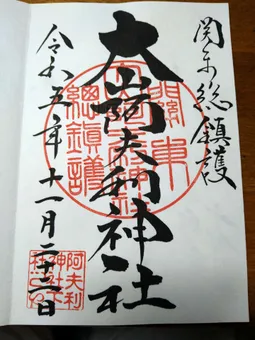 関東総鎮護
大山阿夫利神社
令和五年十一月二十三日
關東
總鎮護
阿夫利
神社下